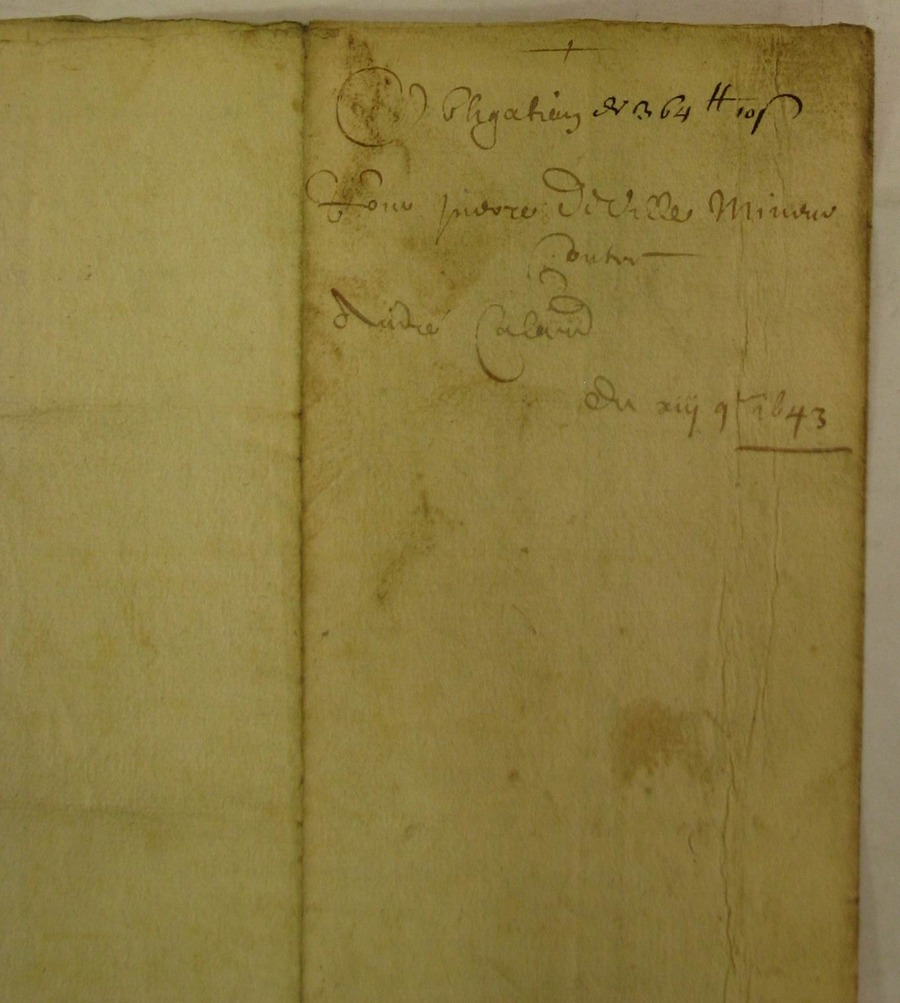 Obligation de 364 ₶ 10 s
Pour pierre DeVille Mineur
Contre
André Calaud
Du xiij 9bre 1643